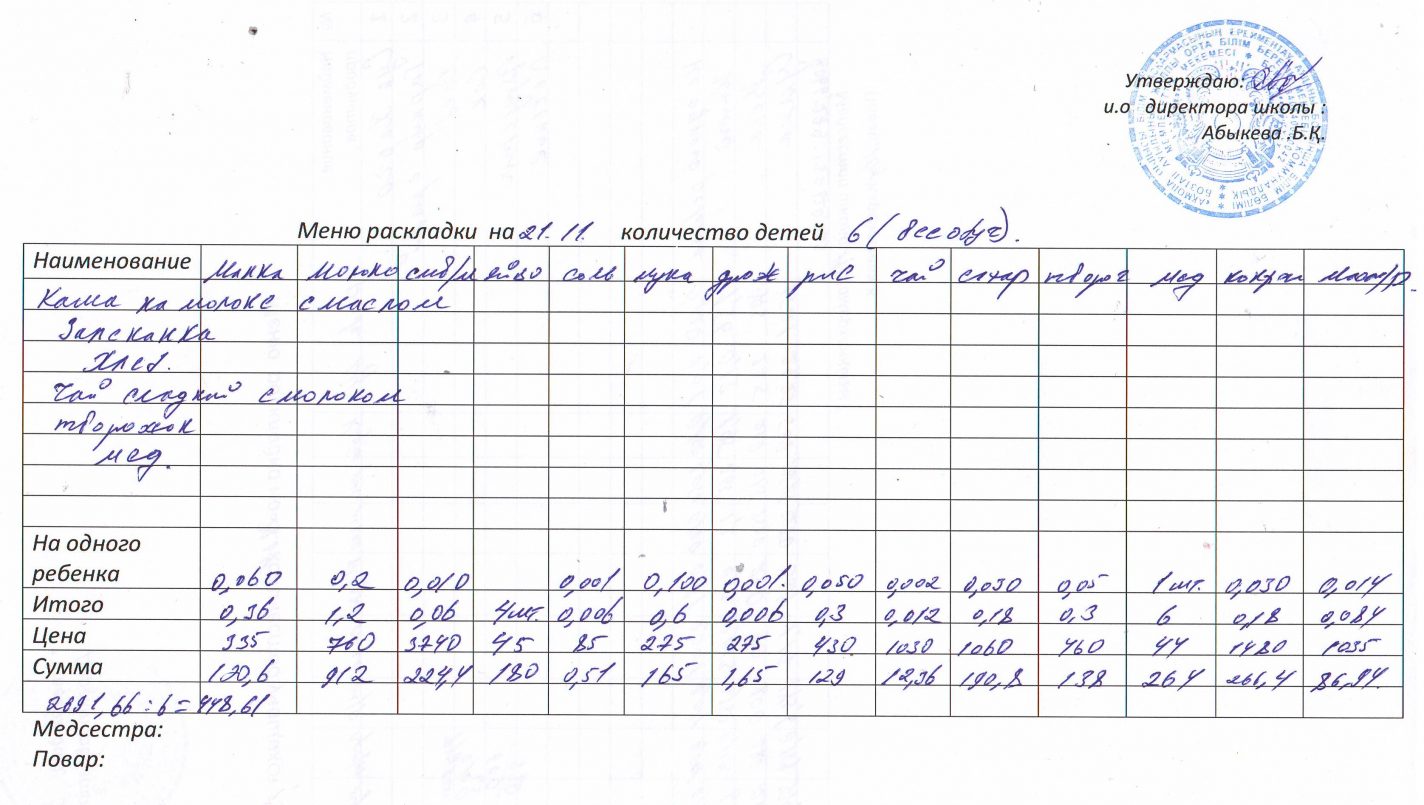 Утверждаю:
и.о директора школы :
Абыкева .Б.Қ.
Меню раскладки на 21. 11. количество детей 6 ( Всеобуч).
Наименование манка молоко сл/м яйцо соль мука дрож рис чай сахар творог мед
Каша на молоке с маслом
Запеканка
Хлеб.
Чай сладкий с молоком
творожок
мед.
На одного
ребенка 0,060 0,2 0,010 0,001 0,100 0,001. 0,050 0,002 0,030 0,05 1 шт. 0,030 0,014
Итого 0,36 1,2 0,06 4шт. 0,006 0,6 0,006 0,3 0,012 0,18 0,3 6 0,18 0,084
Цена 335 760 3740 45 85 275 275 430 1030 1060 460 44 1480 1035
Сумма 120,6 912 224,4 180 0,51 165 1,65 129 12,36 190,8 138 264 266,4 86,94.
2691,66 : 6 = 448,61
Медсестра:
Повар: